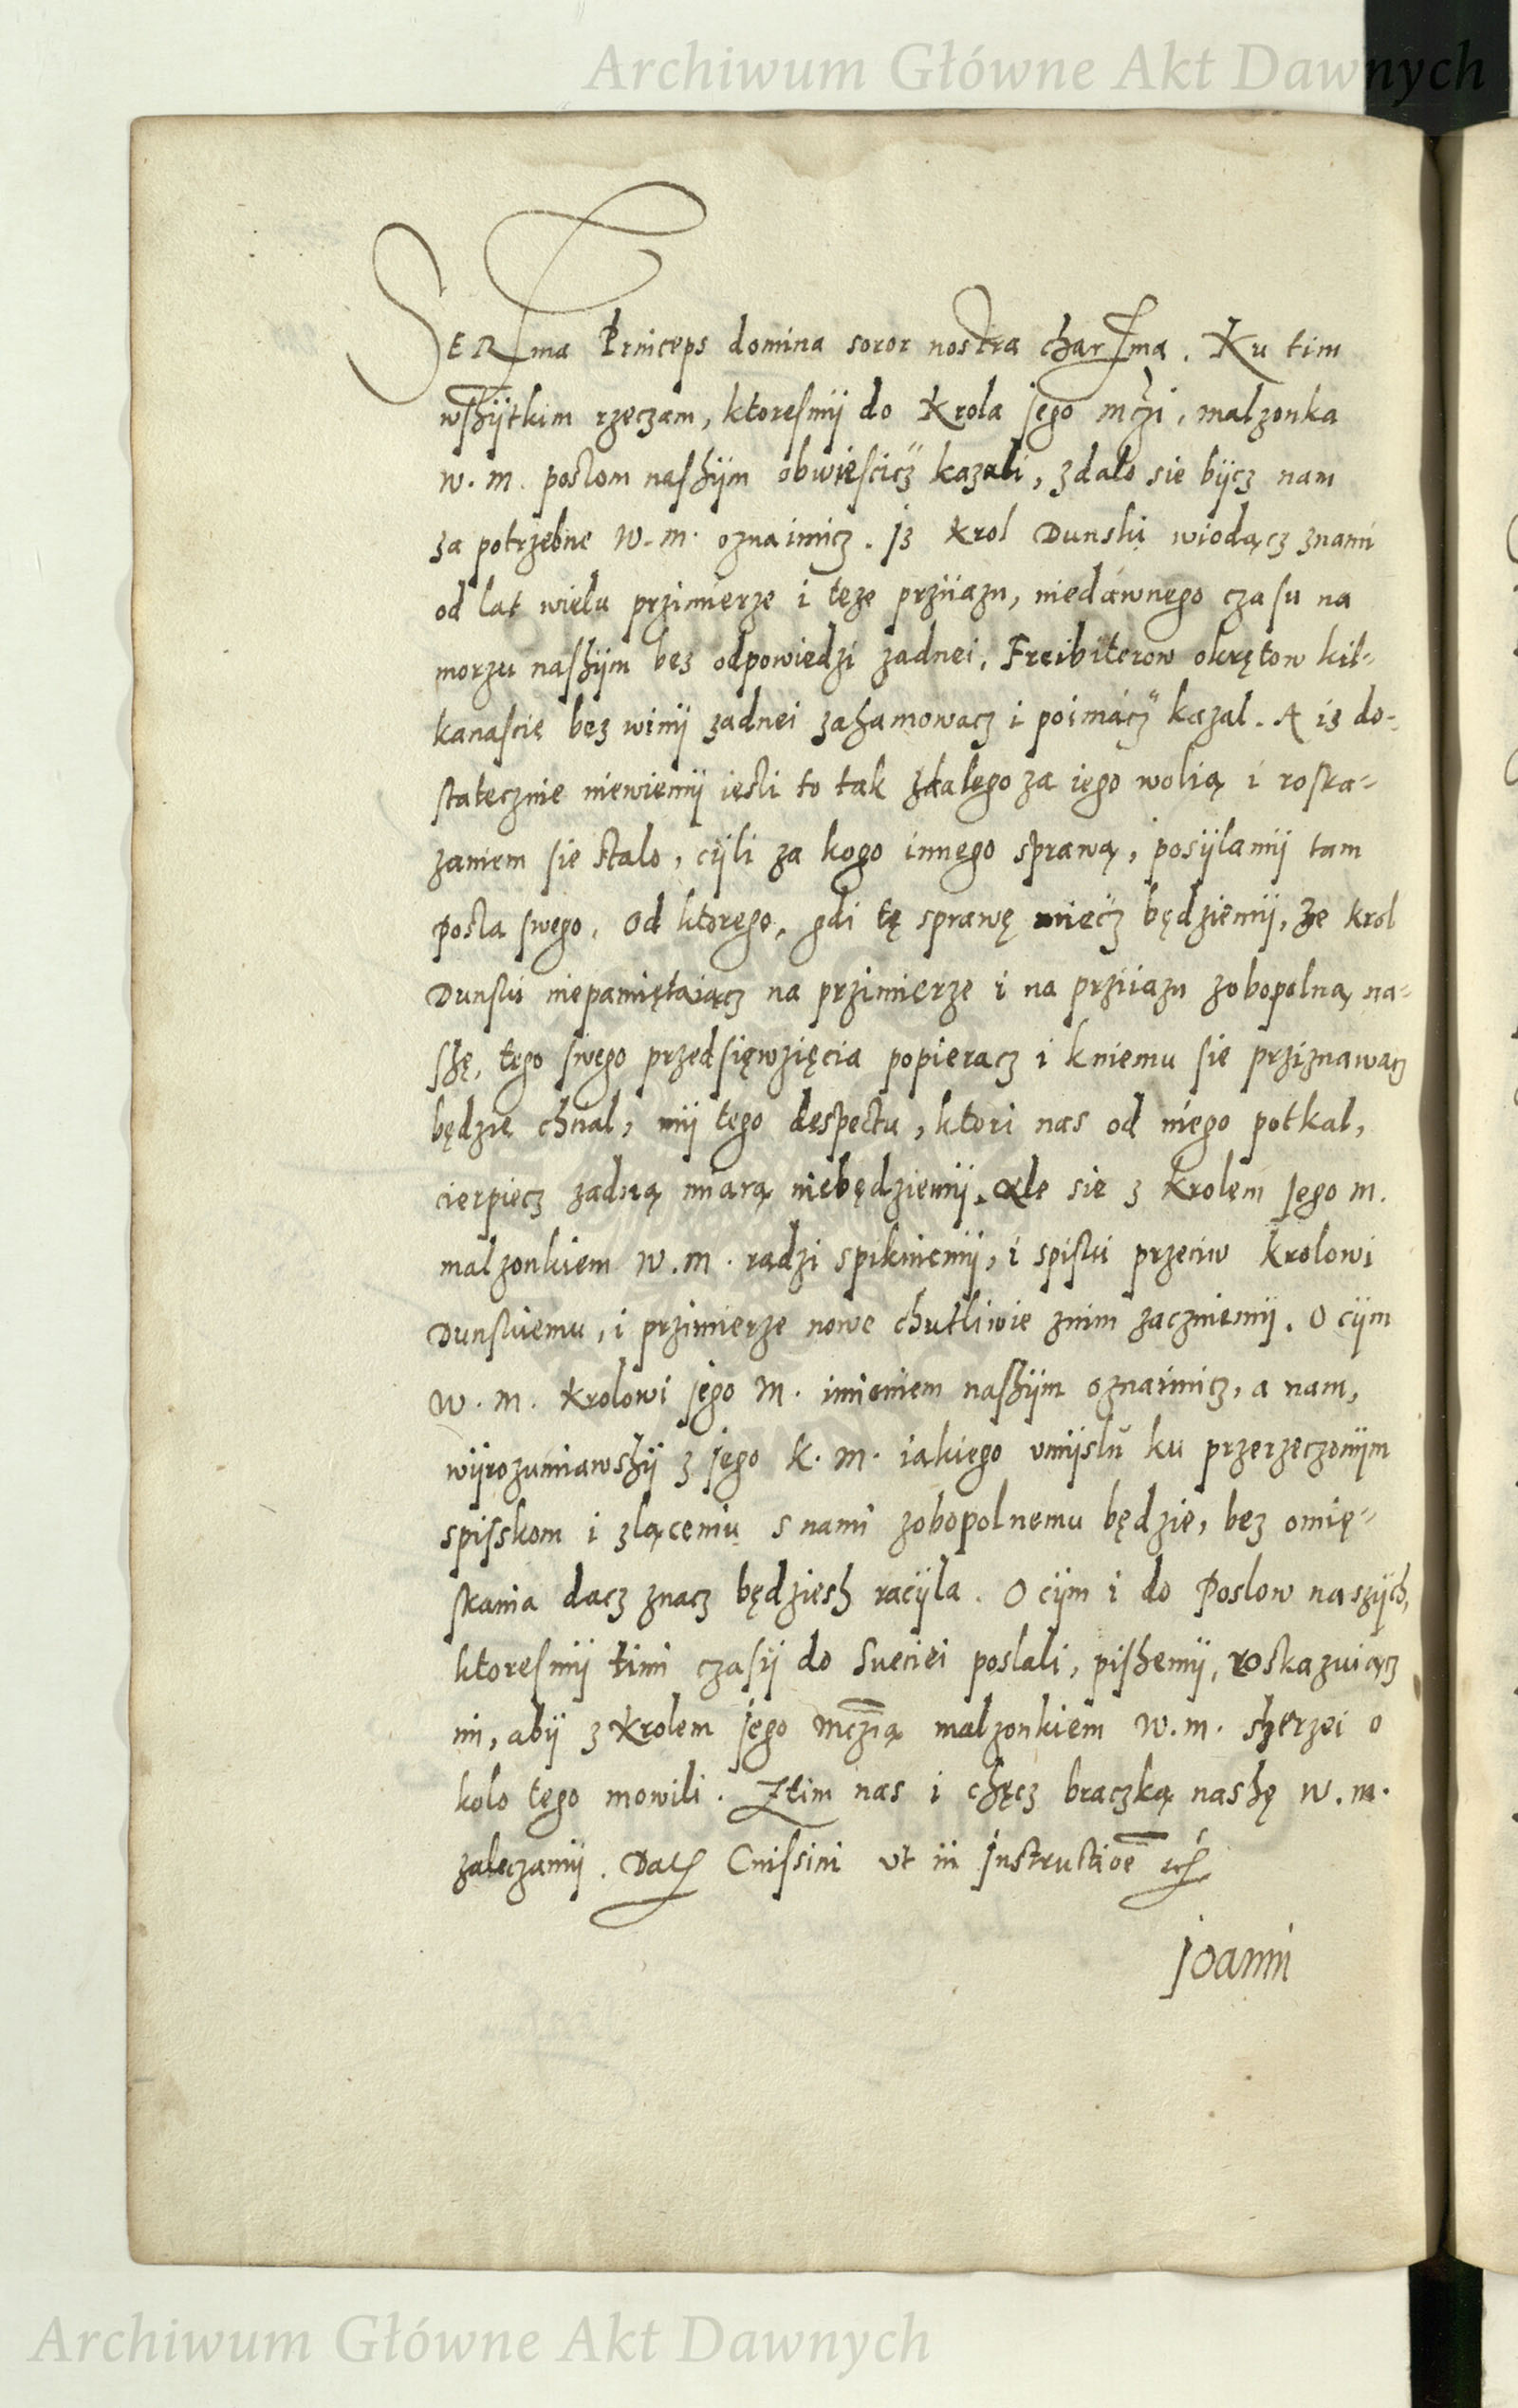 Archiwum Główne Akt Dawnych
SERma Princeps domina soror nostra charma. Ku tim
wshÿtkim rzeczam, ktoresmÿ do Krola jego mczi, malzonka
w. m. postom nashÿm obwiescicz kazali, zdalo sie bÿcz nam
za potrzebne W. m. oznaimicz. Jz Krol Dunski wiodącz znami
od lat wielu przimierze i teze prziiazn, niedawnego czasu na
morzu nashÿm bez odpowiedzi zadnei, Freibiterow okrętow kil-
kanascie bez winÿ zadnei zahamowacz i poimacz kazal. A iz do-
statecznie niewiemÿ iesli to tak zkalego za iego wolią i roska-
zaniem sie stalo, cÿli za kogo innego sprawą, posÿlamÿ tam
posla swego, od ktorego, gdi tę sprawę miecz będziemÿ, ze krol
Dunski niepamiętaiącz na przimierze i na prziiazn zobopolną na-
shę, tego swego przedsięwzięcia popieracz i kniemu sie przіznawacz
będzie chcial, mÿ tego despectu, ktori nas od niego potkal,
cierpiecz zadną miarą niebędziemÿ, ale sie z Krolem Jego m.
malzonkiem W. m. radzi spikniemÿ, i spiski przeciw Krolowi
Dunskiemu, i przimierze nowe chutliwie znim zaczniemÿ. O cÿm
W. m. Krolowi jego M. imieniem nashÿm oznaimicz, a nam,
wÿrozumiawshÿ z jego K. M. iakiego umÿslu ku przerzeczonÿm
spisskom i zlączeniu s nami zobopolnemu będzie, bez omię-
skania dacz znacz będziesh racÿla. O cÿm i do Poslow naszÿch,
ktoresmÿ timi czasÿ do Sueciei poslali, pishemÿ, roskazuiącz
im, abÿ z Krolem jego mczią malzonkiem W. m. sherzei o
kolo tego mowili. Ztim nas i chęcz braczką nashę W. m.
zaleczamÿ. Dat Cnissini ut in Instructioe etc
Joanni
Archiwum Główne Akt Dawnych